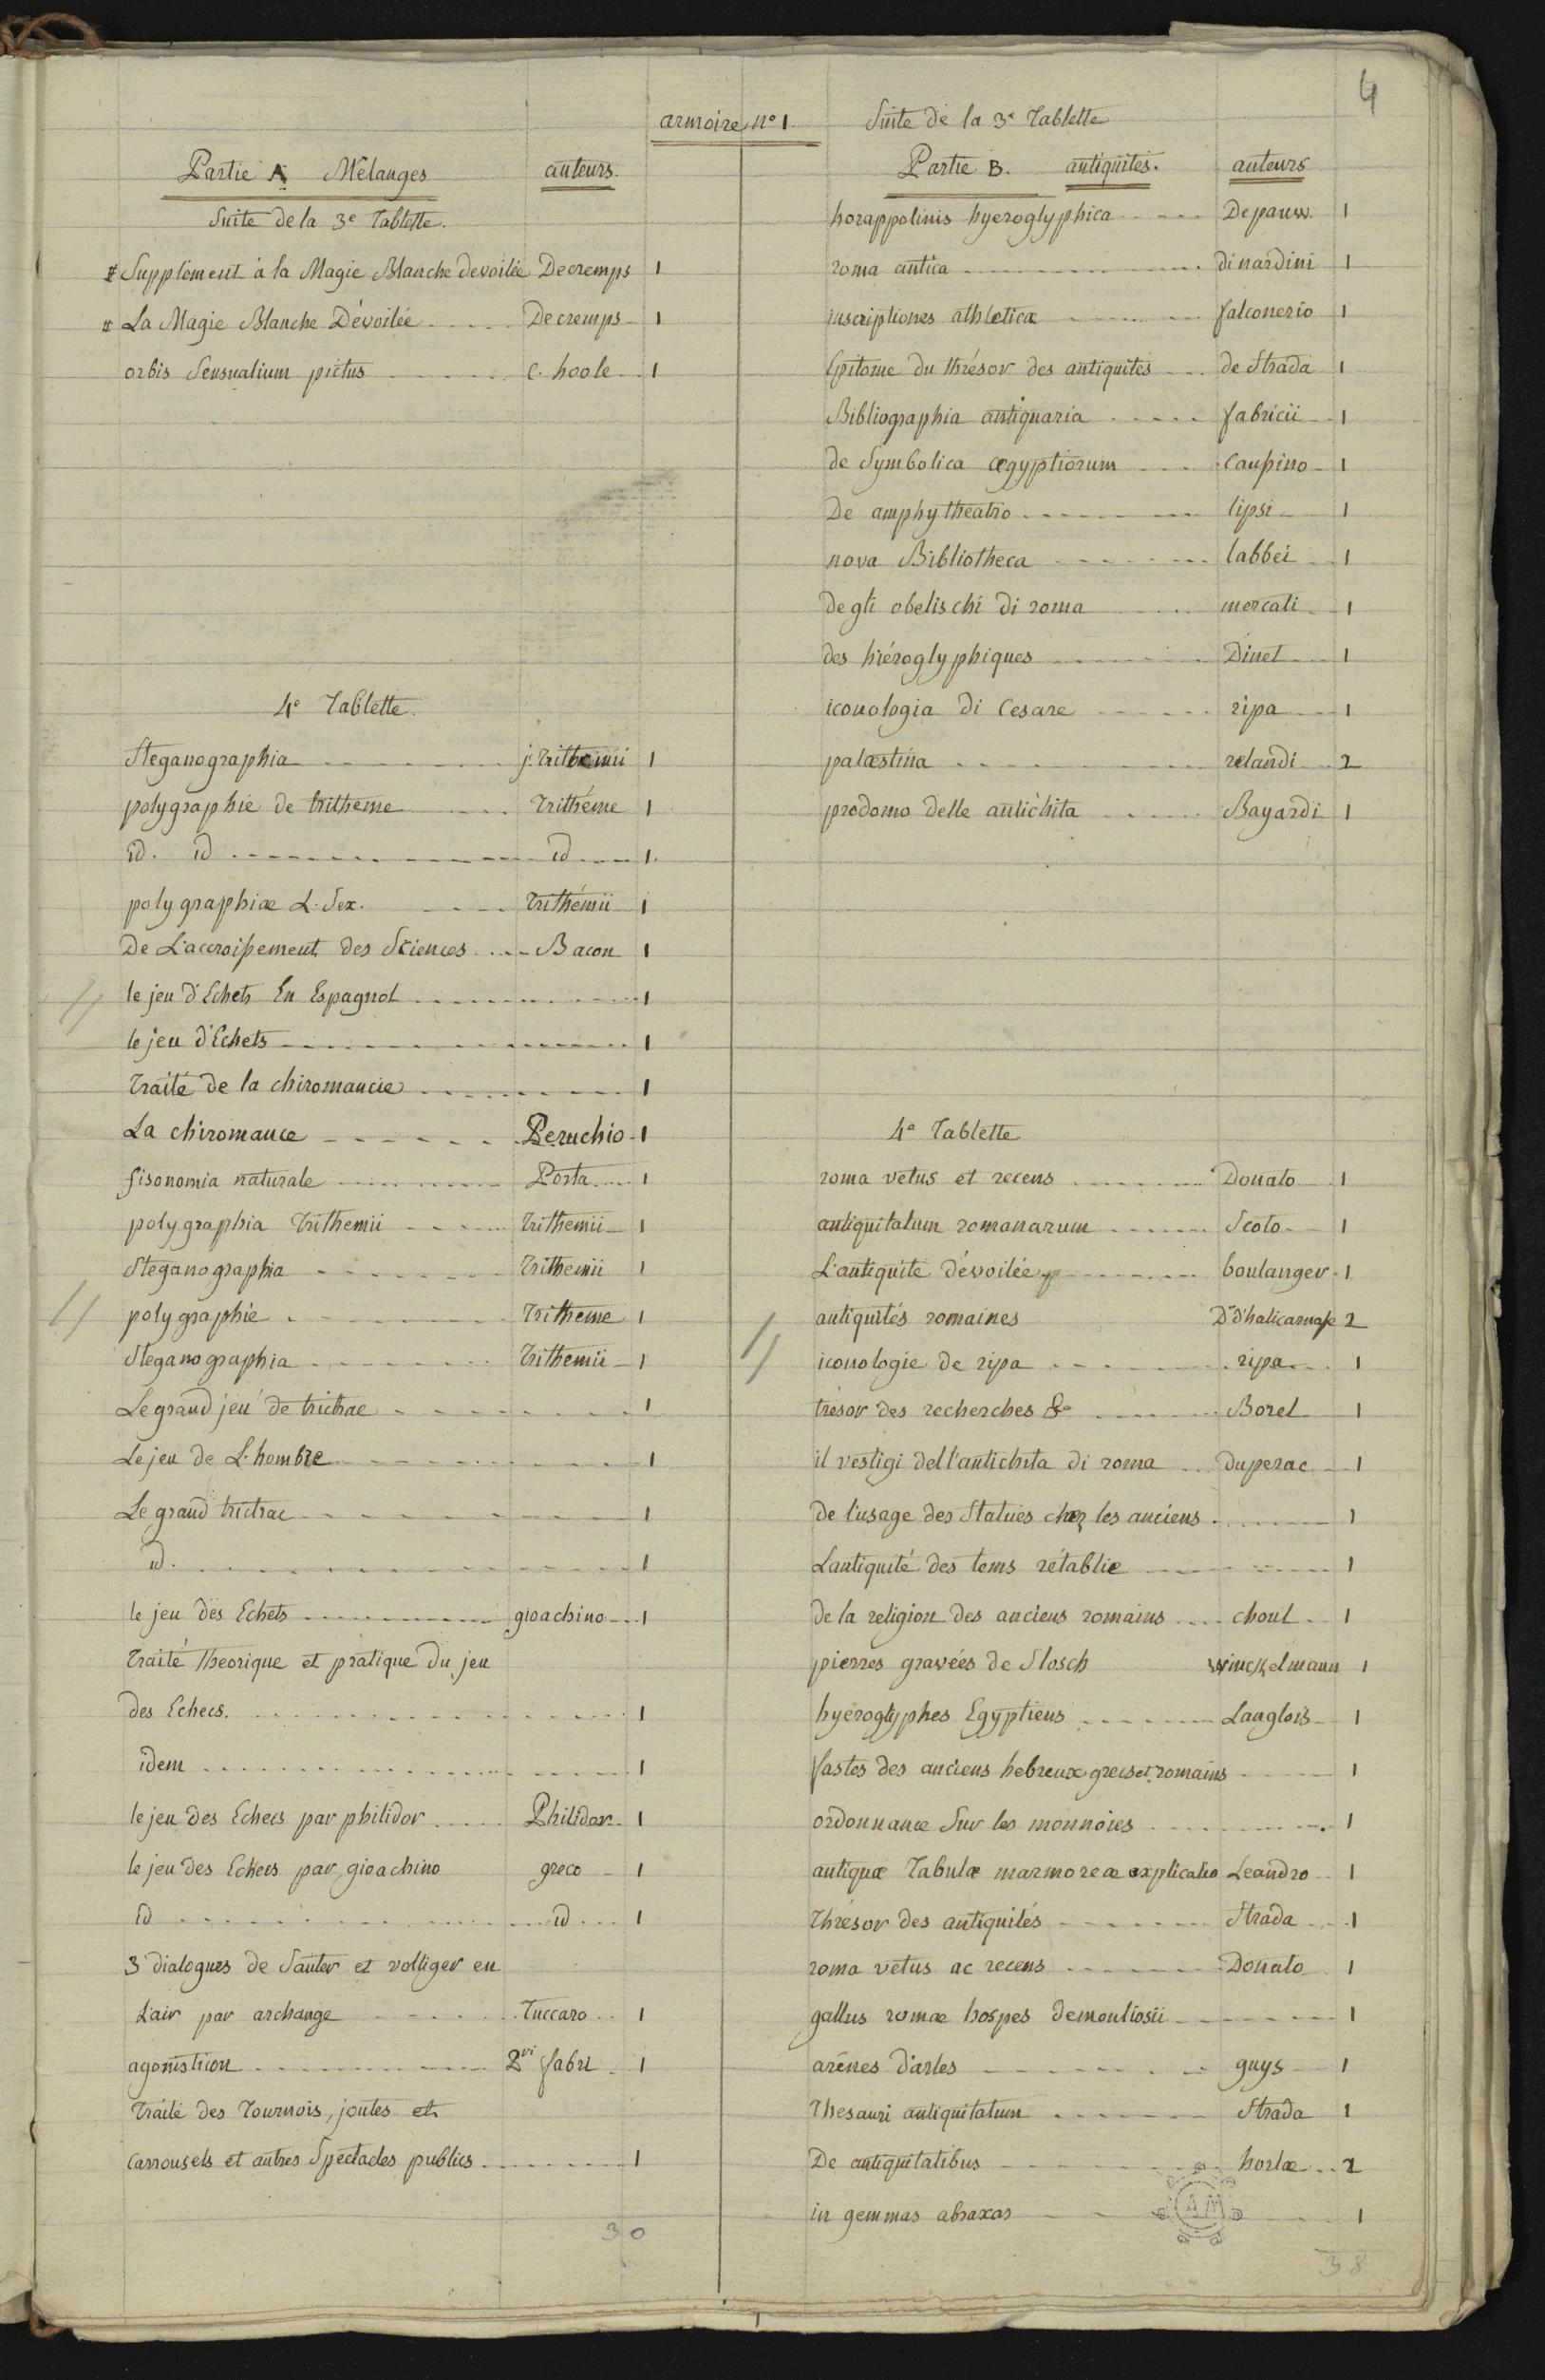 4
armoire n° 1
Partie A Mélanges auteurs.
Suite de la 3e Tablette.
# Supplément à la Magie Blanche devoilée Decremps 1
# La Magie Blanche Dévoilée Decremps 1
orbis Sensualium pictus c. hoole 1
4e Tablette.
Steganographia j. trithemii 1
polygraphie de tritheme Trithéme 1
id. id id 1.
polygraphiæ L. Sex. Trithémii 1
De L'accroissement des Sciences Bacon 1
le jeu d'Echets En Espagnol 1
le jeu d'Echets 1
Traité de la chiromancie 1
La chiromance Peruchio 1
fisonomia naturale Porta 1
polygraphia Trithemii trithemii 1
Steganographia Trithemii 1
polygraphie Tritheme 1
Steganographia Trithemii 1
Le grand jeu de trictrac 1
Le jeu de L'hombre 1
Le grand trictrac 1
id. 1
le jeu des Echets gioachino 1
Traité theorique et pratique du jeu
des Echecs. 1
idem 1
le jeu des Echecs par philidor Philidor 1
le jeu des Echecs par gioachino greco 1
id id 1
3 dialogues de Sauter et voltiger en
L'air par archange Tuccaro 1
agonisticon Pri fabri 1
Traité des Tournois, joutes et
carrousels et autres Spectacles publics 1
30
Suite de la 3e Tablette
Partie B. antiquités. auteurs
horappolinis hyeroglyphica Depauw. 1
roma antica di nardini 1
inscriptiones athleticæ falconerio 1
Epitome du thrésor des antiquités de Strada 1
Bibliographia antiquaria fabricii 1
de Symbolica ægyptiorum Caussino 1
De amphytheatro lipsi 1
nova Bibliotheca labbei 1
degli obelischi di roma mercati 1
des hiéroglyphiques Dinet 1
iconologia di Cesare ripa 1
palæstina relandi 2
prodomo delle antichita Bayardi 1
4e Tablette
roma vetus et recens Donato 1
antiquitatum romanarum Scoto 1
L'antiquite dévoilée boulanger 1
antiquités romaines Ds d'halicarnasse 2
iconologie de ripa ripa 1
trésor des recherches &a Borel 1
il vestigi dell'antichita di roma Duperac 1
de l'usage des Statues chez les anciens 1
L'antiquité des tems rétablie 1
de la religion des anciens romains choul 1
pierres gravées de Stosch Winckelmann 1
hyéroglyphes Egyptiens Langlois 1
fastes des anciens hebreux grecs et romains 1
ordonnance Sur les monnoies 1
antiquæ Tabulæ marmoreæ explicatio Leandro 1
Thrésor des antiquités Strada 1
roma vetus ac recens Donato 1
gallus romæ hospes demontiosii 1
arènes d'arles guys 1
Thesauri antiquitatum Strada 1
De antiquitatibus hortæ 2
in gemmas abraxas 1
AM
38